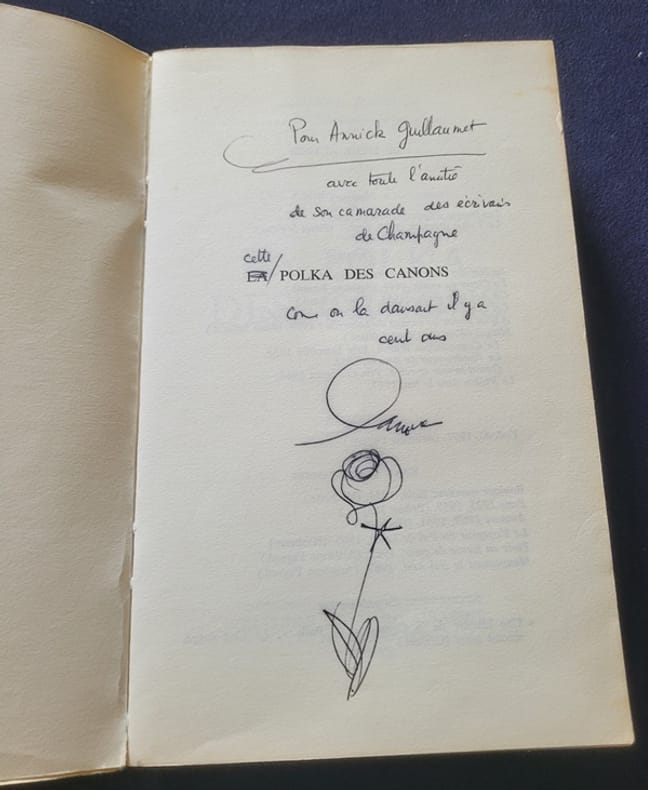 Pour Annick Guillaumet
avec toute l'amitié
de son camarade des écrivains
de Champagne
cette
LA / POLKA DES CANONS
comme on la dansait il y a
cent ans